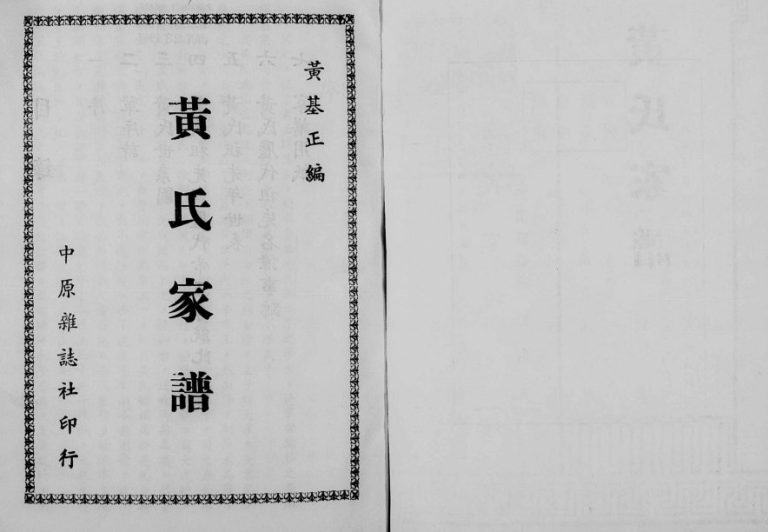 黃基正編
黃氏家譜
中原雜誌社印行